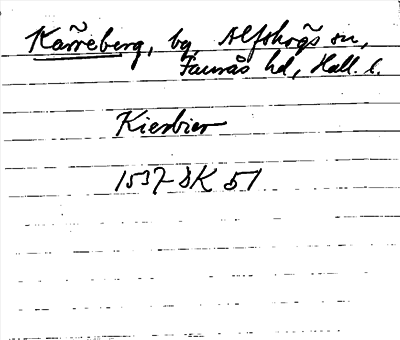 Kärreberg, bg, Alfshögs sn,
Faurås hd, Hall. l.
Kierbier
1537 DK 51